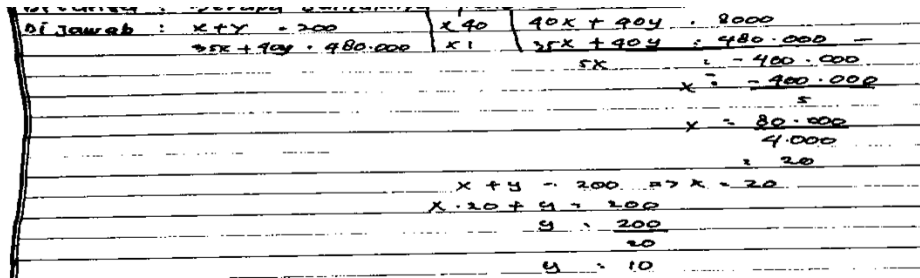 Dijawab : x+y = 200 | x40 | 40x + 40y = 8000
35x + 40y = 480.000 | x1 | 35x + 40y = 480.000 -
5x = -400.000
x = -400.000
5
x = 80.000
4.000
= 20
x + y = 200 => x = 20
x.20 + y = 200
y = 200
20
y = 10